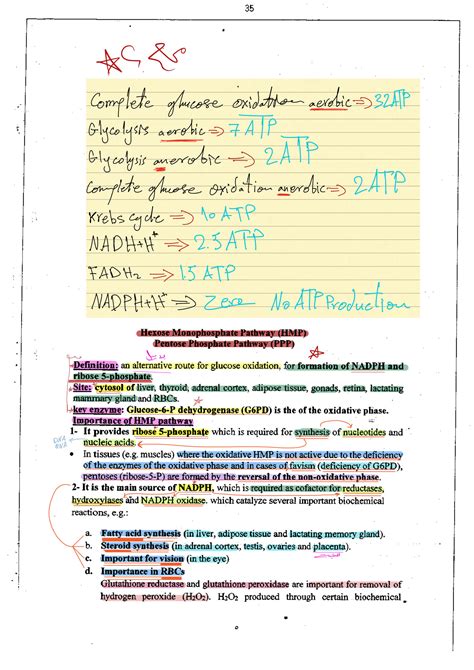 35
Complete glucose oxidation aerobic => 32ATP
Glycolysis aerobic => 7ATP
Glycolysis anerobic => 2ATP
Complete glucose oxidation anerobic => 2ATP
Krebs cycle => 10 ATP
NADH+H+ => 2.5 ATP
FADH2 => 1.5 ATP
NADPH+H+ => Zero No ATP Production
Hexose Monophosphate Pathway (HMP)
Pentose Phosphate Pathway (PPP)
Definition: an alternative route for glucose oxidation, for formation of NADPH and
ribose 5-phosphate.
Site: cytosol of liver, thyroid, adrenal cortex, adipose tissue, gonads, retina, lactating
mammary gland and RBCs.
key enzyme: Glucose-6-P dehydrogenase (G6PD) is of the oxidative phase.
Importance of HMP pathway
1- It provides ribose 5-phosphate which is required for synthesis of nucleotides and
nucleic acids.
• In tissues (e.g. muscles) where the oxidative HMP is not active due to the deficiency
of the enzymes of the oxidative phase and in cases of favism (deficiency of G6PD),
pentoses (ribose-5-P) are formed by the reversal of the non-oxidative phase.
2- It is the main source of NADPH, which is required as cofactor for reductases,
hydroxylases and NADPH oxidase. which catalyze several important biochemical
reactions, e.g.:
a. Fatty acid synthesis (in liver, adipose tissue and lactating memory gland).
b. Steroid synthesis (in adrenal cortex, testis, ovaries and placenta).
c. Important for vision (in the eye)
d. Importance in RBCs
Glutathione reductase and glutathione peroxidase are important for removal of
hydrogen peroxide (H2O2). H2O2 produced through certain biochemical